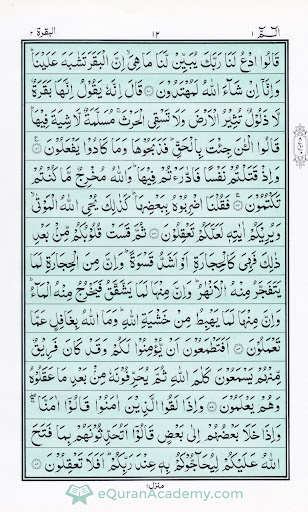 الٓمّٓ ١ ١٢ البقرة ٢
قَالُوا ادْعُ لَنَا رَبَّكَ يُبَيِّنْ لَّنَا مَا هِىَ ۙ اِنَّ الْبَقَرَ تَشٰبَهَ عَلَيْنَا ؕ
وَاِنَّاۤ اِنْ شَآءَ اللّٰهُ لَمُهْتَدُوْنَ ۞ قَالَ اِنَّهٗ يَقُوْلُ اِنَّهَا بَقَرَةٌ
لَّا ذَلُوْلٌ تُثِيْرُ الْاَرْضَ وَلَا تَسْقِى الْحَرْثَ ۚ مُسَلَّمَةٌ لَّا شِيَةَ فِيْهَا ؕ
قَالُوا الْـٰٔنَ جِئْتَ بِالْحَقِّ ؕ فَذَبَحُوْهَا وَمَا كَادُوْا يَفْعَلُوْنَ ۞
وَاِذْ قَتَلْتُمْ نَفْسًا فَادّٰرَءْتُمْ فِيْهَا ؕ وَاللّٰهُ مُخْرِجٌ مَّا كُنْتُمْ
تَكْتُمُوْنَ ۞ فَقُلْنَا اضْرِبُوْهُ بِبَعْضِهَا ؕ كَذٰلِكَ يُحْىِ اللّٰهُ الْمَوْتٰى ۙ
وَيُرِيْكُمْ اٰيٰتِهٖ لَعَلَّكُمْ تَعْقِلُوْنَ ۞ ثُمَّ قَسَتْ قُلُوْبُكُمْ مِّنْۢ بَعْدِ
ذٰلِكَ فَهِىَ كَالْحِجَارَةِ اَوْ اَشَدُّ قَسْوَةً ؕ وَاِنَّ مِنَ الْحِجَارَةِ لَمَا
يَتَفَجَّرُ مِنْهُ الْاَنْهٰرُ ؕ وَاِنَّ مِنْهَا لَمَا يَشَّقَّقُ فَيَخْرُجُ مِنْهُ الْمَآءُ ؕ
وَاِنَّ مِنْهَا لَمَا يَهْبِطُ مِنْ خَشْيَةِ اللّٰهِ ؕ وَمَا اللّٰهُ بِغَافِلٍ عَمَّا
تَعْمَلُوْنَ ۞ اَفَتَطْمَعُوْنَ اَنْ يُّؤْمِنُوْا لَكُمْ وَقَدْ كَانَ فَرِيْقٌ
مِّنْهُمْ يَسْمَعُوْنَ كَلٰمَ اللّٰهِ ثُمَّ يُحَرِّفُوْنَهٗ مِنْۢ بَعْدِ مَا عَقَلُوْهُ
وَهُمْ يَعْلَمُوْنَ ۞ وَاِذَا لَقُوا الَّذِيْنَ اٰمَنُوْا قَالُوْۤا اٰمَنَّا ۖۚ
وَاِذَا خَلَا بَعْضُهُمْ اِلٰى بَعْضٍ قَالُوْۤا اَتُحَدِّثُوْنَهُمْ بِمَا فَتَحَ
اللّٰهُ عَلَيْكُمْ لِيُحَآجُّوْكُمْ بِهٖ عِنْدَ رَبِّكُمْ ؕ اَفَلَا تَعْقِلُوْنَ ۞
منزل ١
eQuranAcademy.com